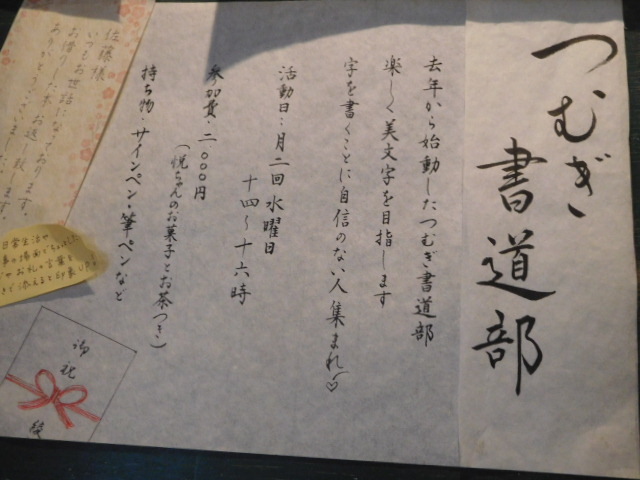 つむぎ
書道部
去年から始動したつむぎ書道部
楽しく美文字を目指します
字を書くことに自信のない人集まれ♡
活動日:月二回水曜日
十四〜十六時
参加費:二〇〇〇円
(悦ちゃんのお菓子とお茶つき)
持ち物・サインペン・筆ペンなど
佐藤様
いつもお世話になっております。
お借りした本、お返し致します。
ありがとうございました。
日常生活の
御祝